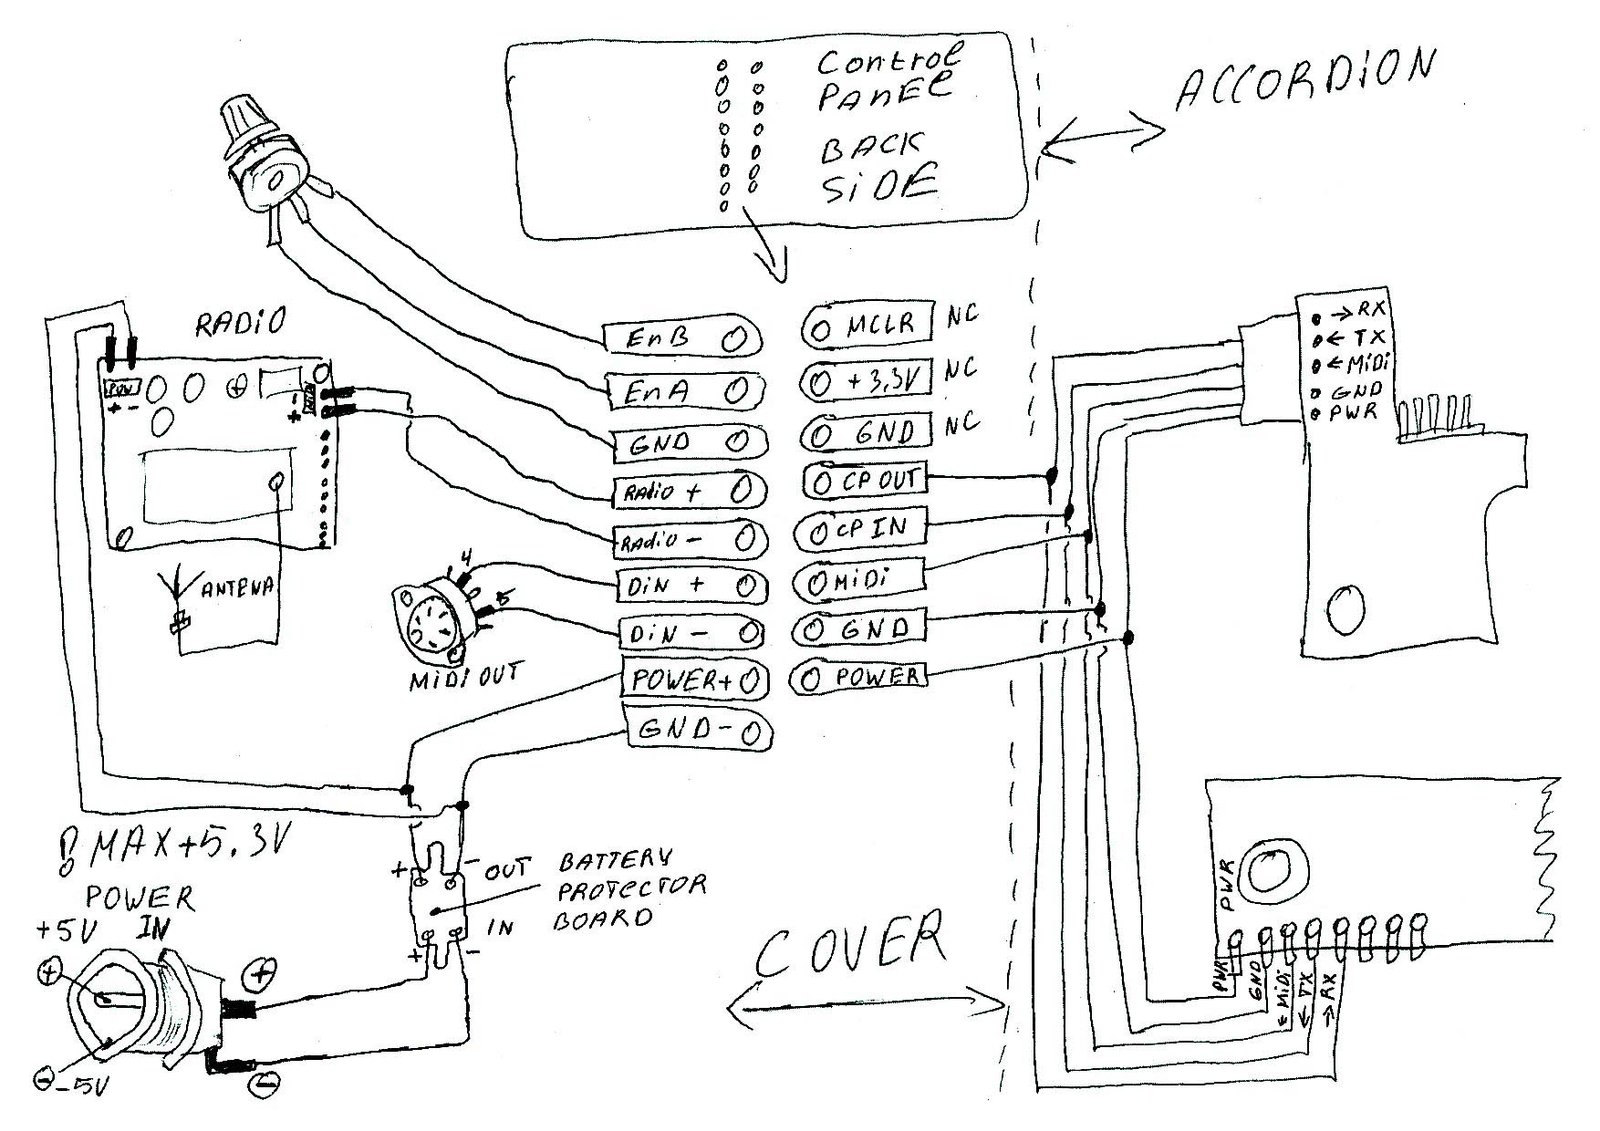 Control
PANEL
BACK
SIDE
ACCORDION
RADIO
PWR
+ -
-
+
ANTENA
4
5
MIDI OUT
EnB
EnA
GND
RADIO +
RADIO -
DIN +
DIN -
POWER+
GND-
MCLR NC
+3,3V NC
GND NC
CP OUT
CP IN
MIDI
GND
POWER
→RX
←TX
←MIDI
GND
PWR
! MAX+5.3V
POWER
IN
+5V
+
-
-5V
+
-
+ - OUT
IN
+ -
BATTERY
PROTECTOR
BOARD
COVER
PWR
PWR
GND
←MIDI
←TX
→RX